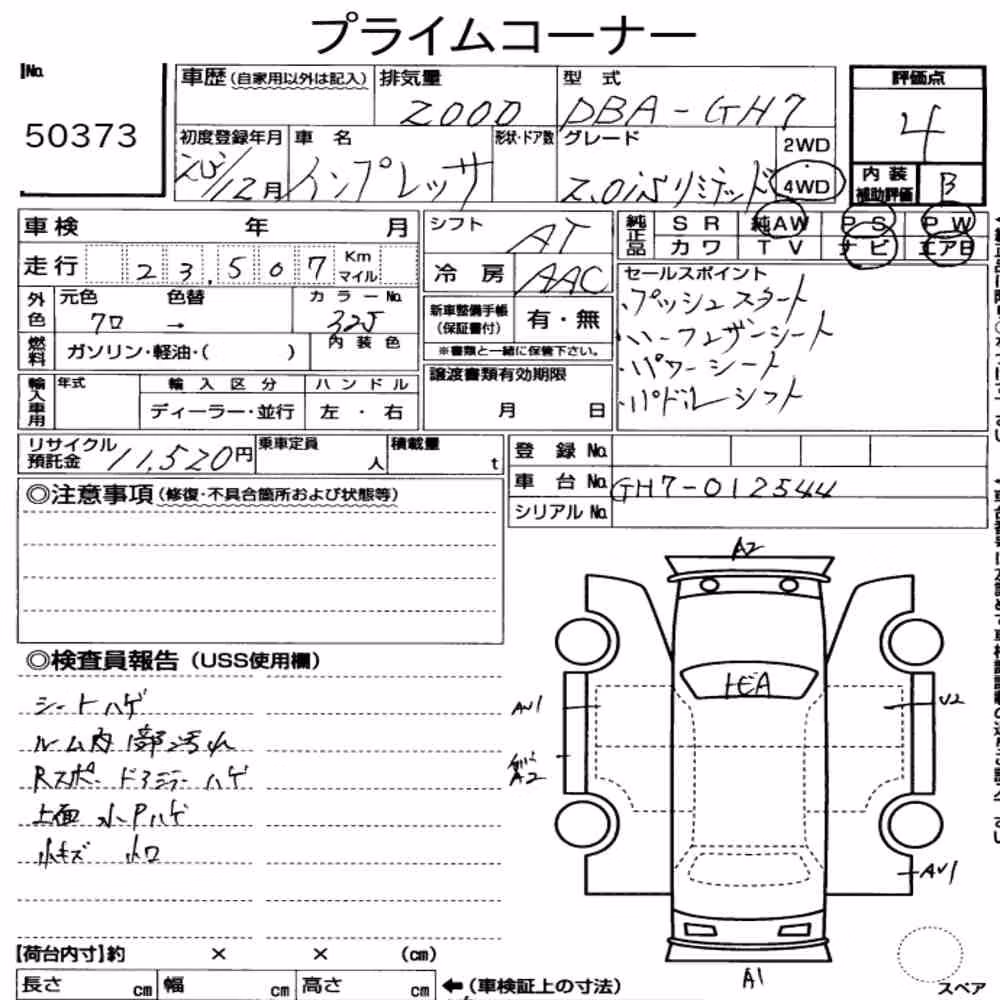 プライムコーナー
No.
50373
車歴(自家用以外は記入)
排気量
2000
型 式
DBA-GH7
評価点
4
初度登録年月
12月
車 名
インプレッサ
形状・ドア数
グレード
2.0iSリミテッド
2WD
4WD
内 装
補助評価
B
車検 年 月
シフト
AT
純正品
SR 純AW PS PW
カワ TV ナビ エアB
走行
23,507
Km
マイル
冷 房
AAC
セールスポイント
・プッシュスタート
・ハーフレザーシート
・パワーシート
・パドルシフト
外色
元色
クロ
色替
→
カラーNo.
32J
新車整備手帳
(保証書付)
有・無
※書類と一緒に保管下さい。
燃料
ガソリン・軽油・( )
内 装 色
輸入車用
年式
輸 入 区 分
ハ ン ド ル
ディーラー・並行
左 ・ 右
譲渡書類有効期限
月 日
リサイクル
預託金
11,520円
乗車定員
人
積載量
t
登 録 No.
車 台 No.
GH7-012544
シリアル No.
◎注意事項(修復・不具合箇所および状態等)
◎検査員報告(USS使用欄)
シートハゲ
ルーム内1部汚れ
Rスポードアミラーハゲ
上面 小Pハゲ
小キズ 小ワ
A2
AV1
A2
V2
AV1
A1
スペア
【荷台内寸】約 × × (cm)
長さ cm
幅 cm
高さ cm
←(車検証上の寸法)